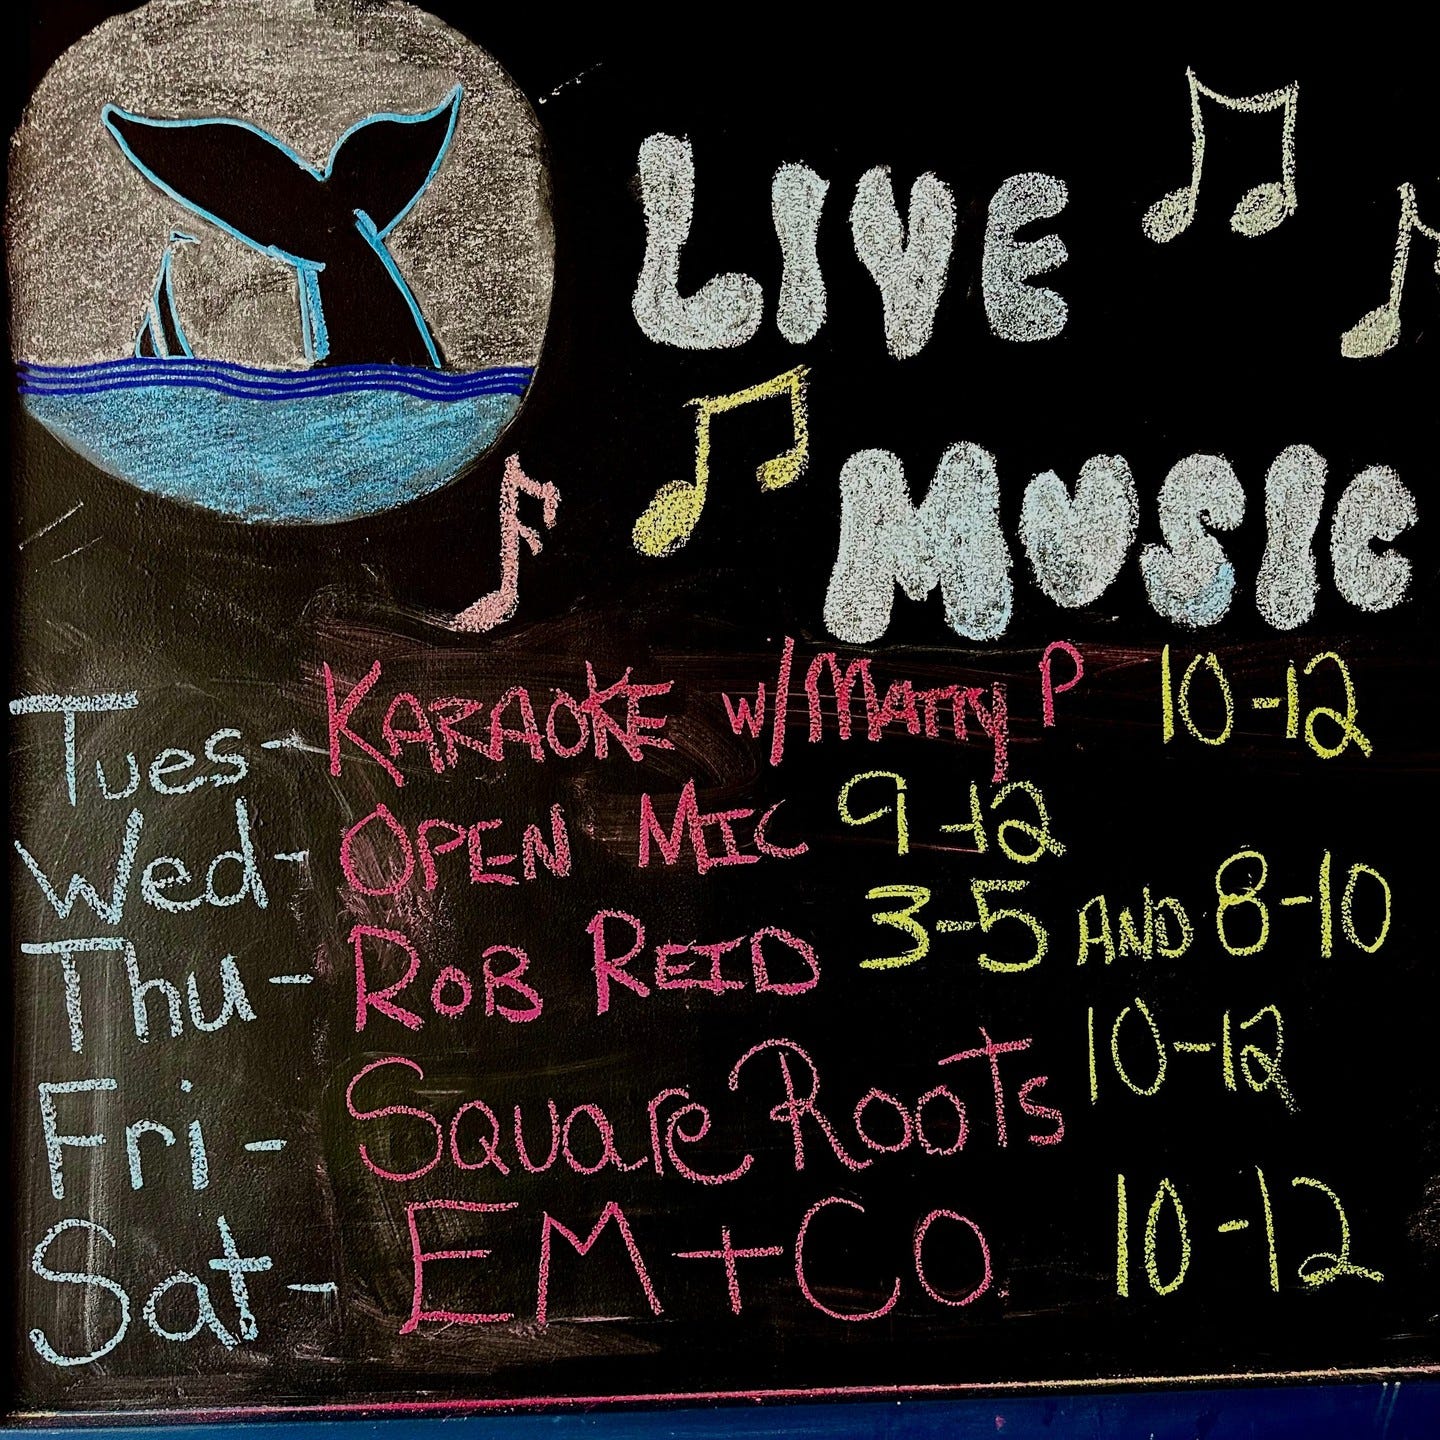 LIVE
MUSIC
Tues - KARAOKE w/ MATTY P 10-12
Wed - OPEN MIC 9-12
Thu - ROB REID 3-5 AND 8-10
Fri - Square Roots 10-12
Sat - EM + CO. 10-12